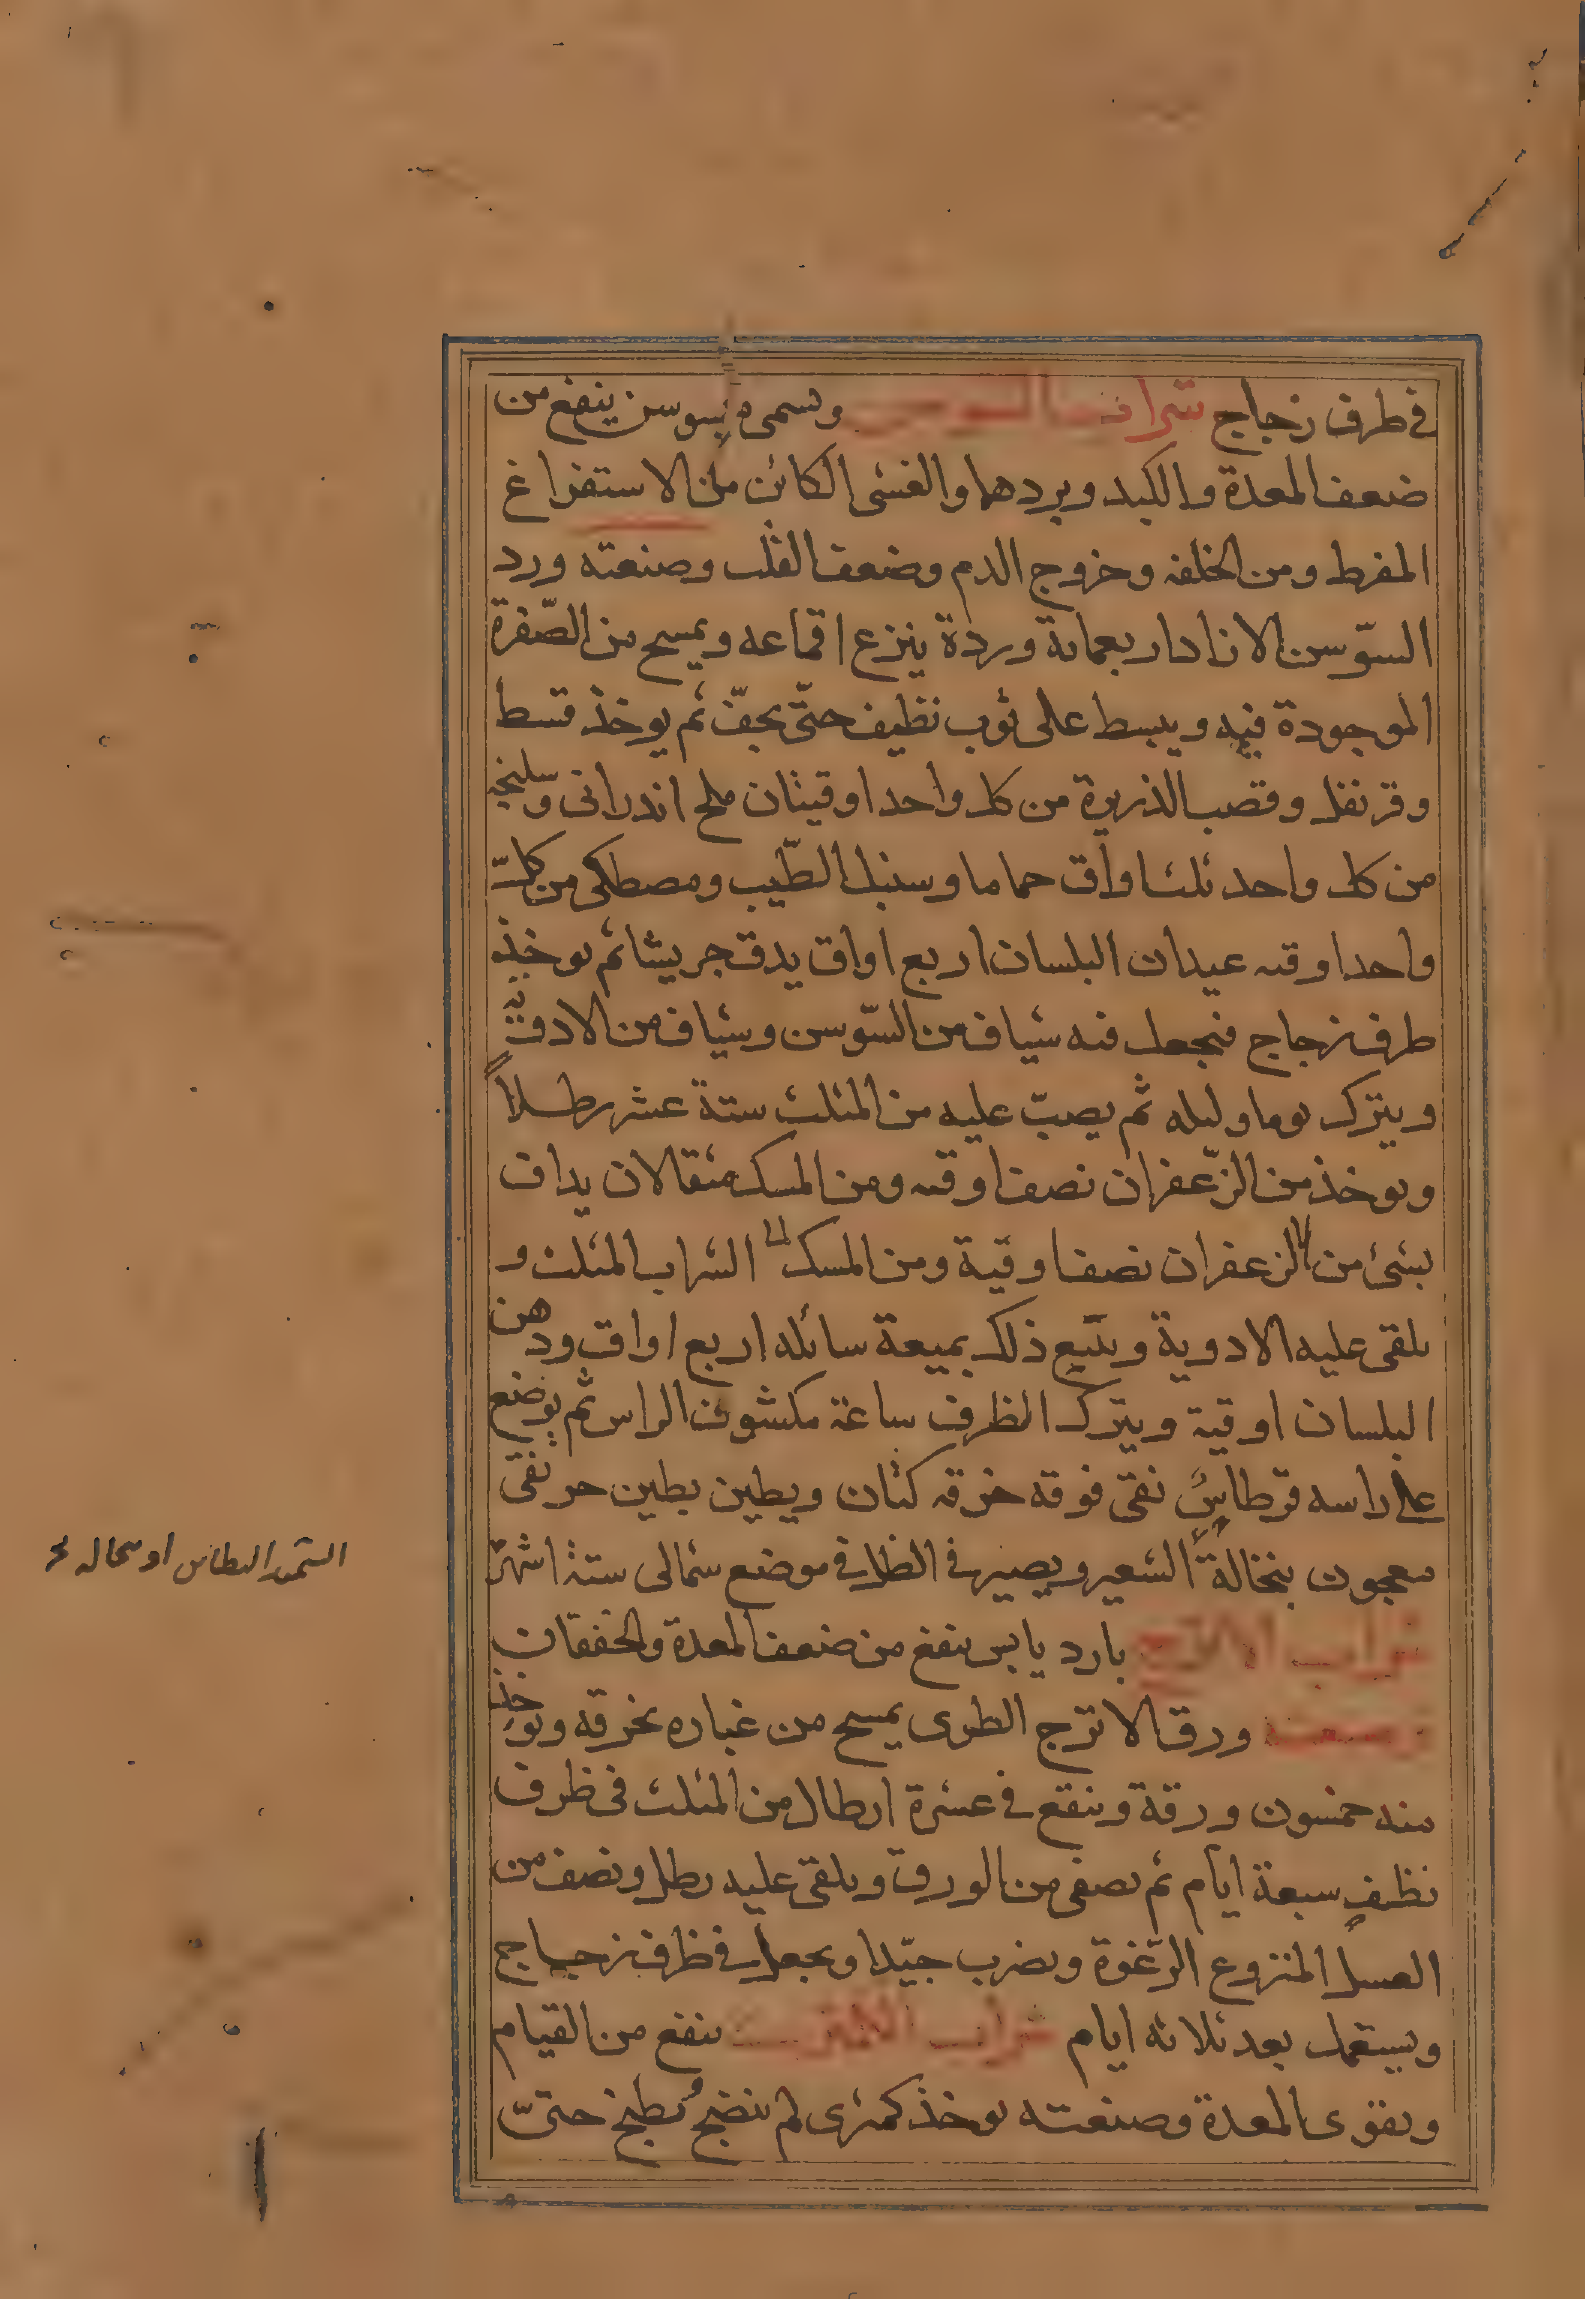 في ظرف زجاج شراب السوسن ويسمى ميسوسن ينفع من
ضعف المعدة والكبد وبردهما والغشى الكائن من الاستفراغ
المفرط ومن الخلفه وخروج الدم وضعف القلب وصنعته ورد
السّوسن الازاد اربعماىة وردة ينزع اقماعه ويمسح من الصّفرة
الموجودة فيه ويبسط على ثوب نظيف حتّى يجفّ ثم يوخذ قسط
وقرنفل وقصب الذريرة من كل واحد اوقيتان ملح اندرانى وسليخه
من كل واحد ثلث اواق حماما وسنبل الطّيب ومصطكى من كلّ
واحد اوقيه عيدان البلسان اربع اواق يدق جريشا ثم يوخذ
ظرف زجاج فيجعل فيه شياف من السّوسن وشياف من الادوية
ويترك يوما وليله ثم يصبّ عليه من المثلث ستة عشر رطلاً
ويوخذ من الزّعفران نصف اوقيه ومن المسك مثقالان يداف
بشئ من الزعفران نصف اوقية ومن المسك الشراب المثلث و
يلقى عليه الادوية ويتبع ذلك بميعة سائله اربع اواق ودهن
البلسان اوقية ويترك الظرف ساعة مكشوف الراس ثم يوضع
على راسه قرطاس نقى فوقه خرقه كتان ويطين بطين حر نقى
معجون بنخالة الشعير ويصير فى الظل فى موضع شمالى ستة اشهر
شراب الاترج بارد يابس ينفع من ضعف المعدة والخفقان
وصنعته ورق الاترج الطرى يمسح من غباره بخرقه ويوخذ
منه خمسون ورقة وينقع فى عشرة ارطال من المثلث فى ظرف
نظيف سبعة ايام ثم يصفى من الورق ويلقى عليه رطل ونصف من
العسل المنزوع الرّغوة ويضرب جيّدا ويجعل فى ظرف زجاج
ويستعمل بعد ثلاثه ايام شراب الكمثرى ينفع من القيام
ويقوى المعدة وصنعته يوخذ كمثرى لم ينضج ويطبخ حتىّ